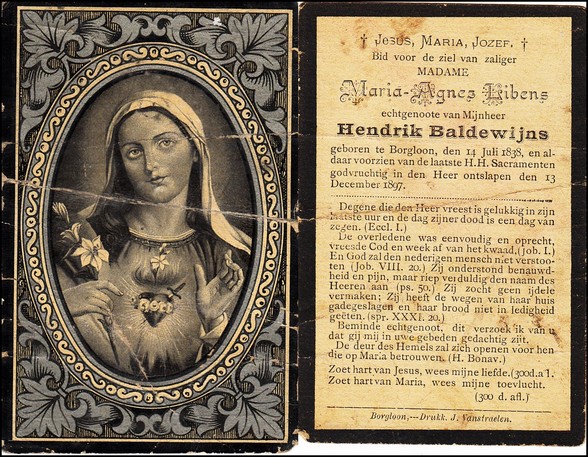 † Jesus, Maria, Jozef. †
Bid voor de ziel van zaliger
MADAME
Maria-Agnes Libens
echtgenoote van Mijnheer
Hendrik Baldewijns
geboren te Borgloon, den 14 Juli 1838, en al-
daar voorzien van de laatste H.H. Sacramenten
godvruchtig in den Heer ontslapen den 13
December 1897.
Degene die den Heer vreest is gelukkig in zijn
laatste uur en de dag zijner dood is een dag van
zegen. (Eccl. I.)
De overledene was eenvoudig en oprecht,
vreesde God en week af van het kwaad, (Job. I.)
En God zal den nederigen mensch niet verstoo-
ten (Job. VIII. 20.) Zij onderstond benauwd-
heid en pijn, maar riep verduldig den naam des
Heeren aan (ps. 50.) Zij zocht geen ijdele
vermaken; Zij heeft de wegen van haar huis
gadegeslagen en haar brood niet in ledigheid
geëten. (spr. XXXI. 20.)
Beminde echtgenoot, dit verzoek ik van u
dat gij mij in uwe gebeden gedachtig zijt.
De deur des Hemels zal zich openen voor hen
die op Maria betrouwen. (H. Bonav.)
Zoet hart van Jesus, wees mijne liefde. (300d.a.l.
Zoet hart van Maria, wees mijne toevlucht.
(300 d. afl.)
Borgloon,—Drukk. J. Vanstraelen.